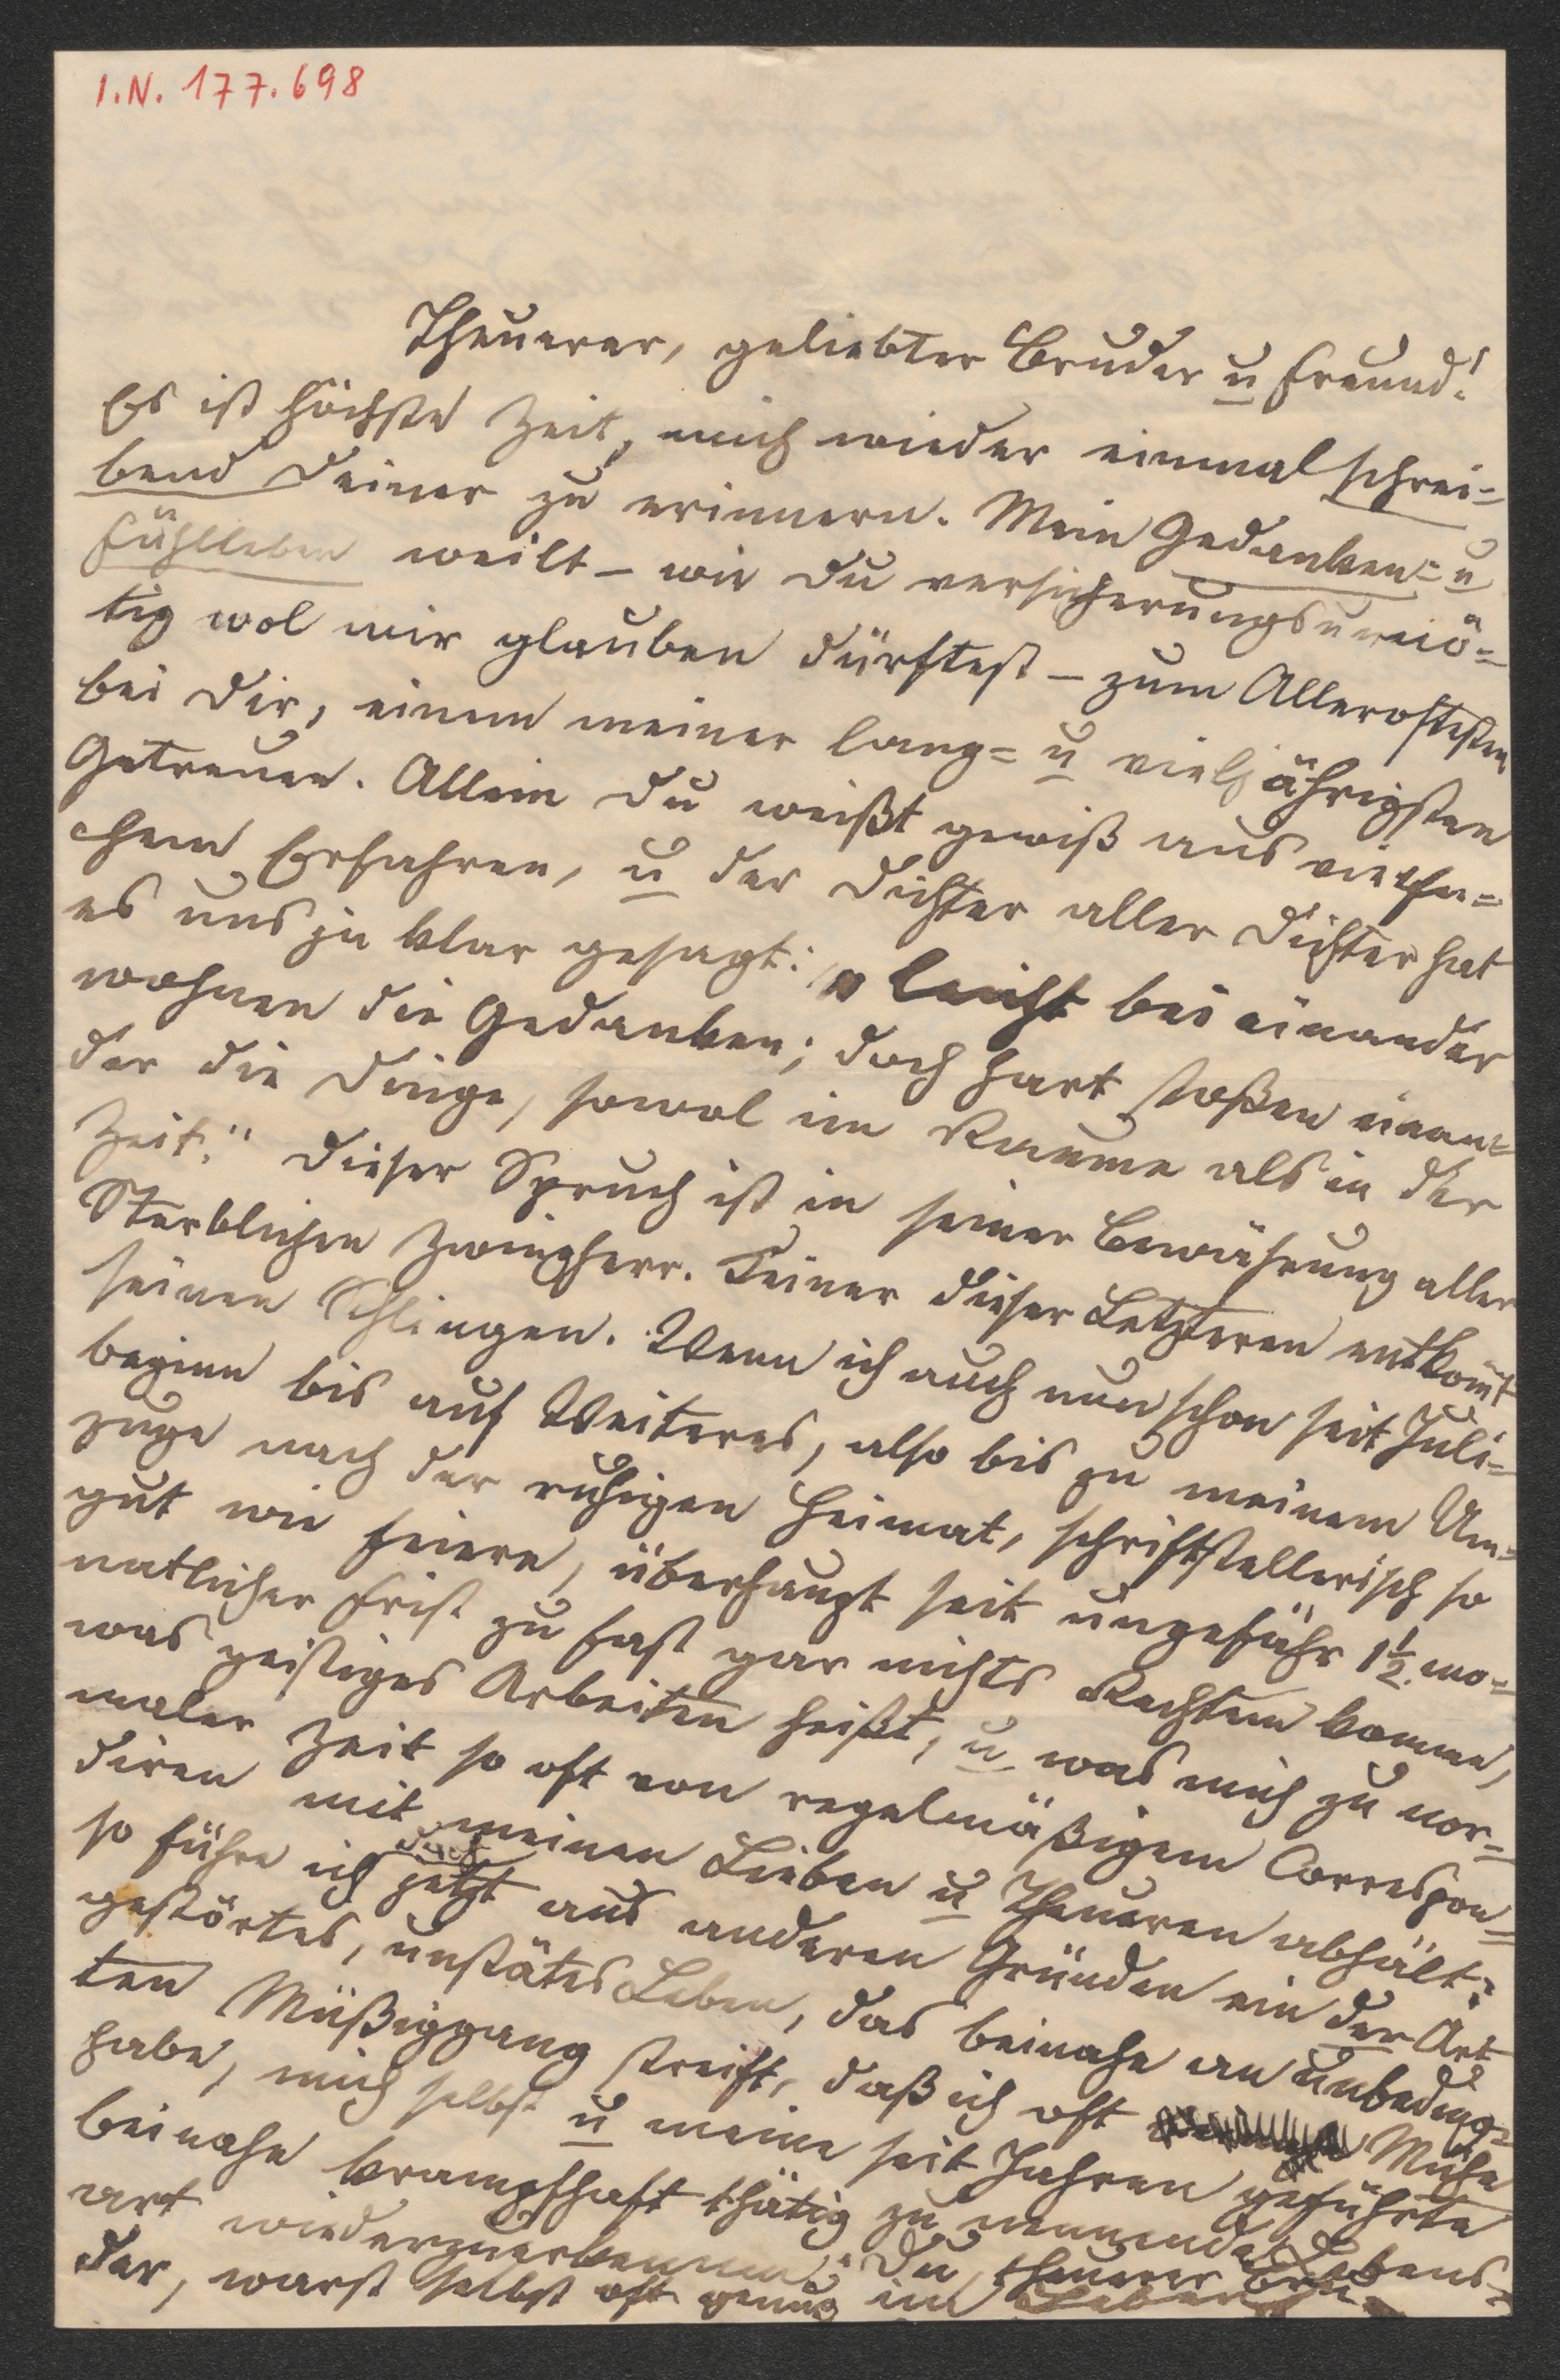 I.N. 177.698
Theuerer, geliebter Bruder u Freund!
Es ist höchste Zeit, mich wieder einmal schrei=
bend Deiner zu erinnern. Mein Gedanken= u
Fühlleben weilt – wie Du versicherungsunnö=
tig wol mir glauben dürftest – zum Alleroftesten
bei Dir, einem meiner lang= u vieljährigsten
Getreuen. Allein Du weißt gewiß aus vielfa=
chem Erfahren, u der Dichter aller Dichter hat
es uns ja klar gesagt: „leicht bei einander
wohnen die Gedanken; doch hart stoßen einan=
der die Dinge, sowol im Raume als in der
Zeit." Dieser Spruch ist in seiner Bewährung aller
Sterblichen Zwingherr. Keiner dieser Letzteren entkom̅t
seinen Schlingen. Wenn ich auch nun schon seit Juli=
beginn bis auf Weiteres, also bis zu meinem Um=
zuge nach der ruhigen Heimat, schriftstellerisch so
gut wie feiere, überhaupt seit ungefähr 1½ mo=
natlicher Frist zu fast gar nichts Rechtem komme,
was geistiges Arbeiten heißt, u was mich zu nor=
maler Zeit so oft von regelmäßigem Correspon=
diren mit meinen Lieben u Theueren abhält:
so führe ich doch jetzt aus anderen Gründen ein der Art
gestörtes, unstätes Leben, das beinahe an unbeding=
ten Müßiggang streift, daß ich oft Mühe
habe, mich selbst u meine seit Jahren geführte
beinahe krampfhaft thätig zu nennende Lebens=
art wiederzuerkennen. Du, theuerer Bru=
der, warst selbst oft genug im Leben